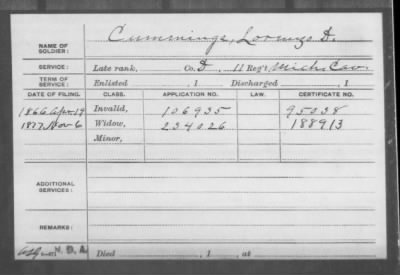 NAME OF SOLDIER: Cummings, Lorenzo D.
SERVICE: Late rank, Co. D, 11 Reg't Mich Cav.
TERM OF SERVICE: Enlisted , 1 Discharged , 1
DATE OF FILING. CLASS. APPLICATION NO. LAW. CERTIFICATE NO.
1866 Apr. 19 Invalid, 106935 95038
1877 Nov 6 Widow, 234026 188913
Minor,
ADDITIONAL SERVICES:
REMARKS:
N. D. A.
Died , 1 , at